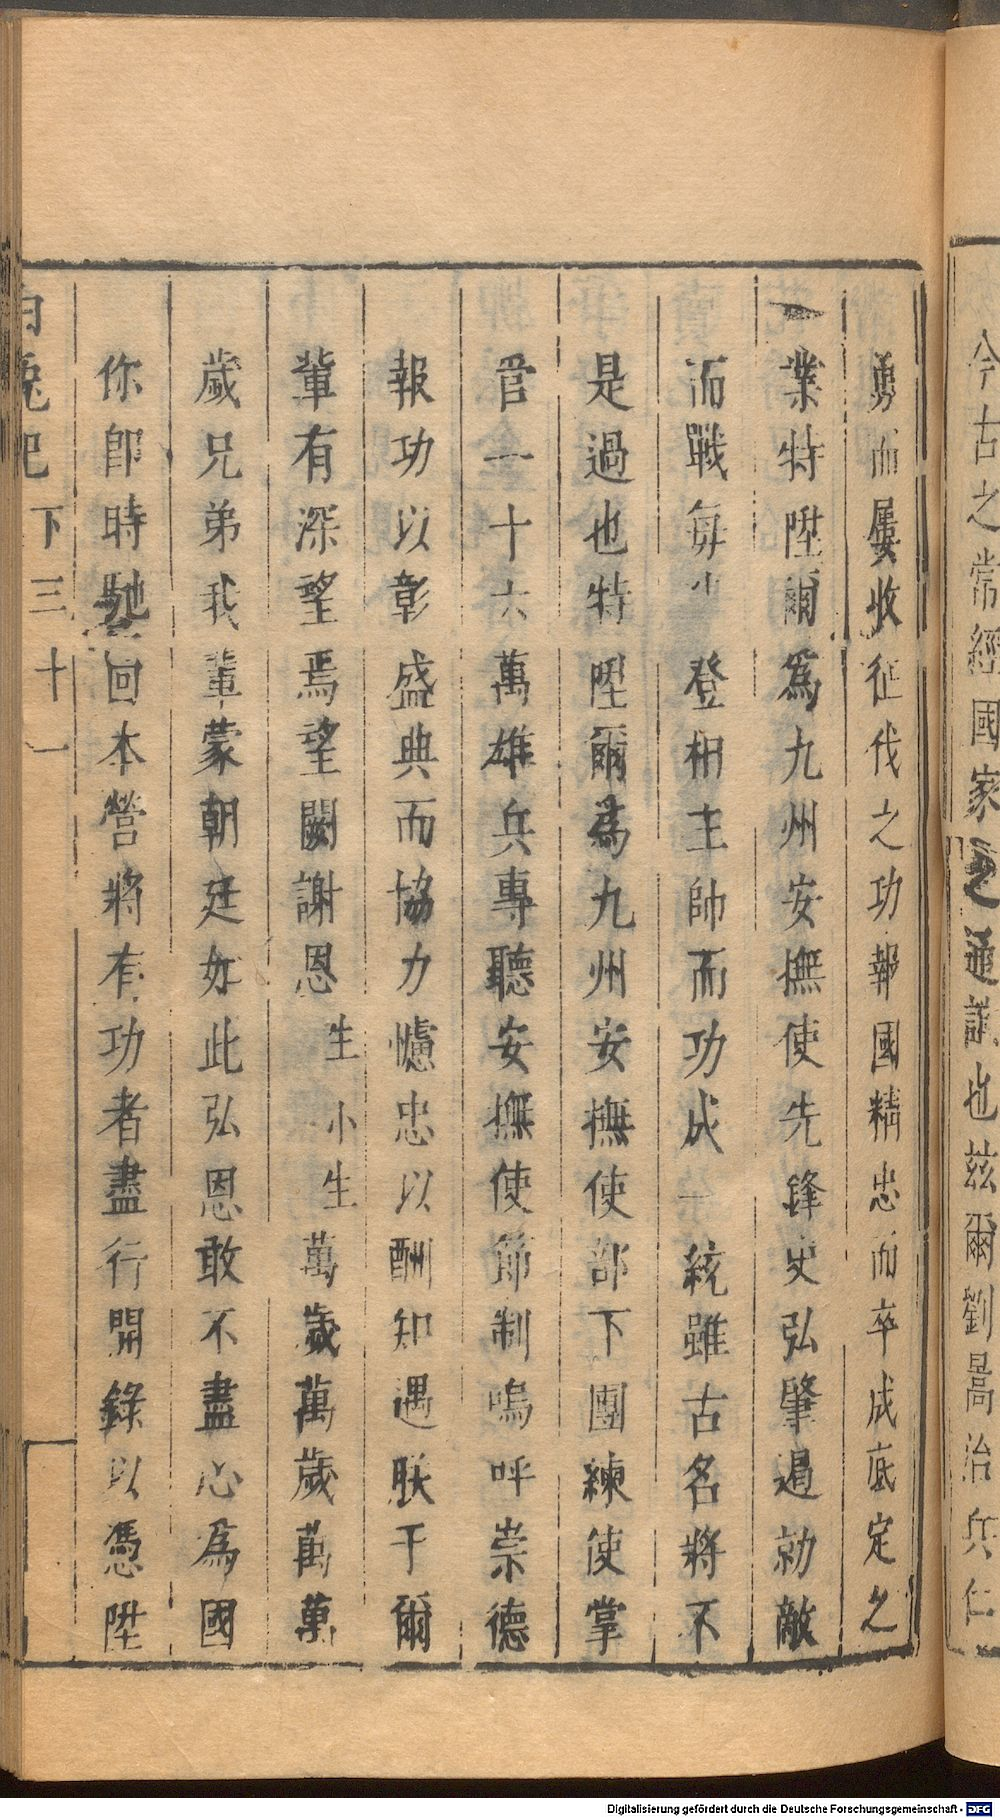 今古之常經國家之通議也茲爾劉暠治兵仁
勇而屢收征伐之功報國精忠而卒成底定之
業特陞爾爲九州安撫使先鋒史弘肇遇勍敵
而戰每 登相主帥而功成一統雖古名將不
是過也特陞爾爲九州安撫使部下團練使掌
官一十六萬雄兵專聽安撫使節制嗚呼崇德
報功以彰盛典而協力懷忠以酬知遇朕于爾
輩有深望焉望闕謝恩 生 小生 萬歲萬歲萬萬
歲兄弟我輩蒙朝廷如此弘恩敢不盡心爲國
你卽時馳回本營將有功者盡行開錄以憑陞
白兔記 下 三十一
Digitalisierung gefördert durch die Deutsche Forschungsgemeinschaft - DFG